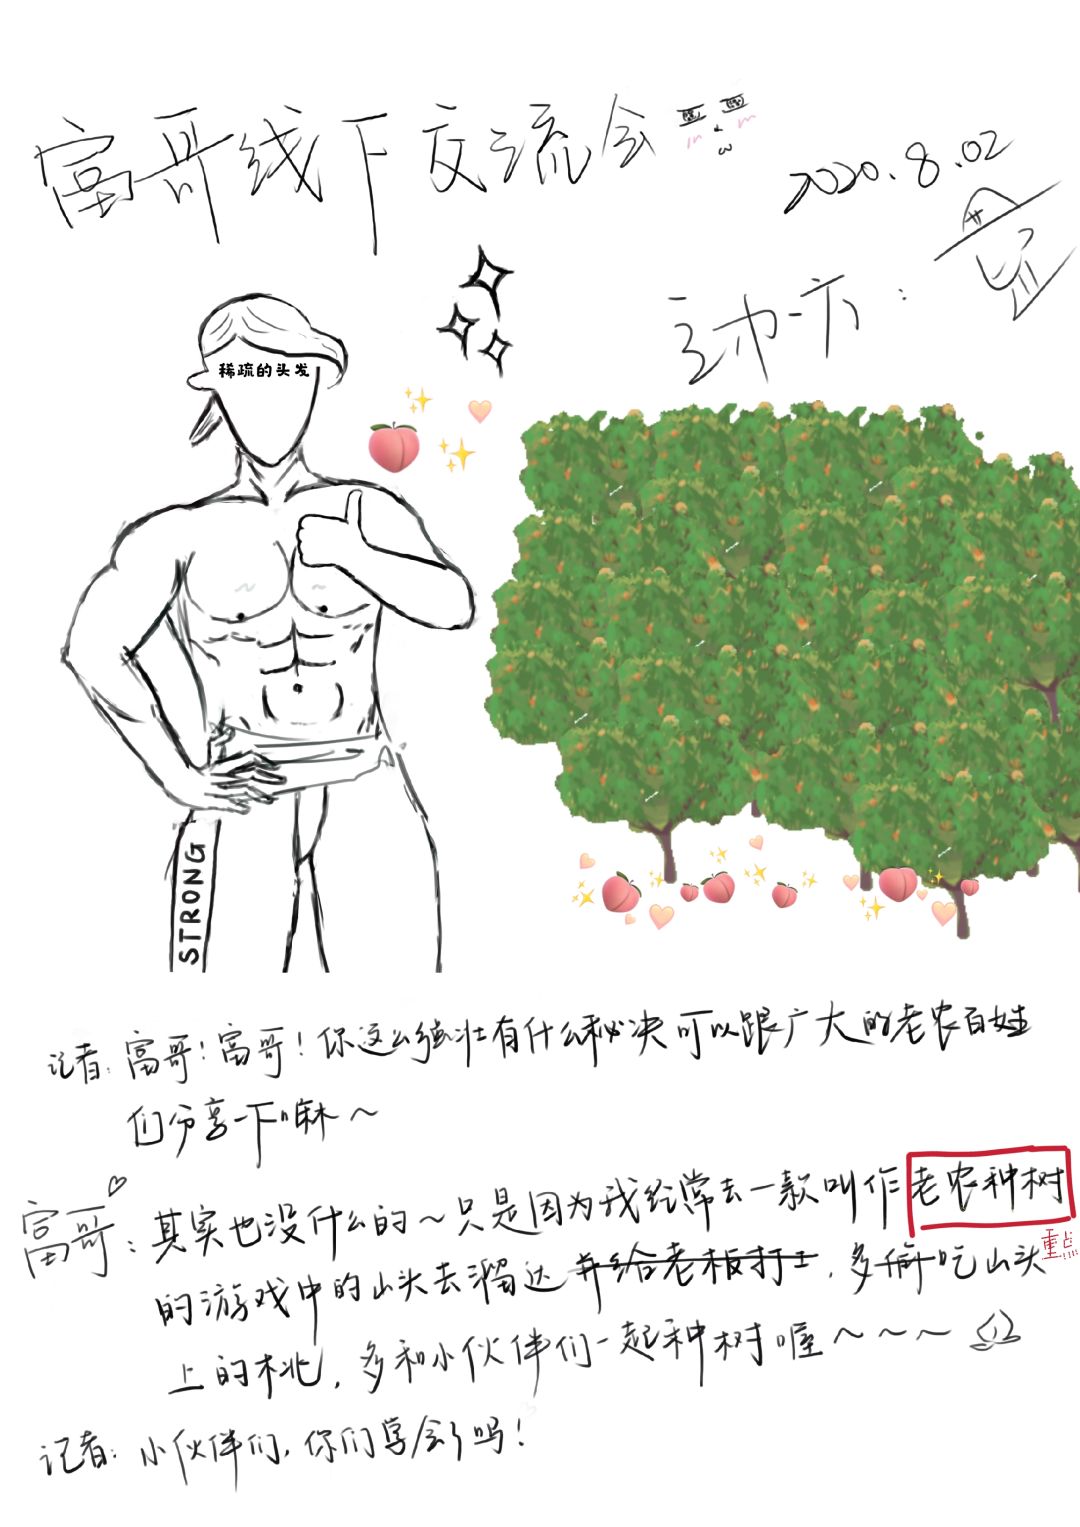 富哥线下交流会
2020.8.02
主办方:
稀疏的头发
STRONG
记者: 富哥! 富哥! 你这么强壮有什么秘决可以跟广大的老农百姓
们分享一下嘛~
富哥: 其实也没什么的~只是因为我经常去一款叫作老农种树
重点!!!!
的游戏中的山头去溜达并给老板打工, 多偷吃山头
上的桃, 多和小伙伴们一起种树喔~~~
记者: 小伙伴们, 你们学会了吗!